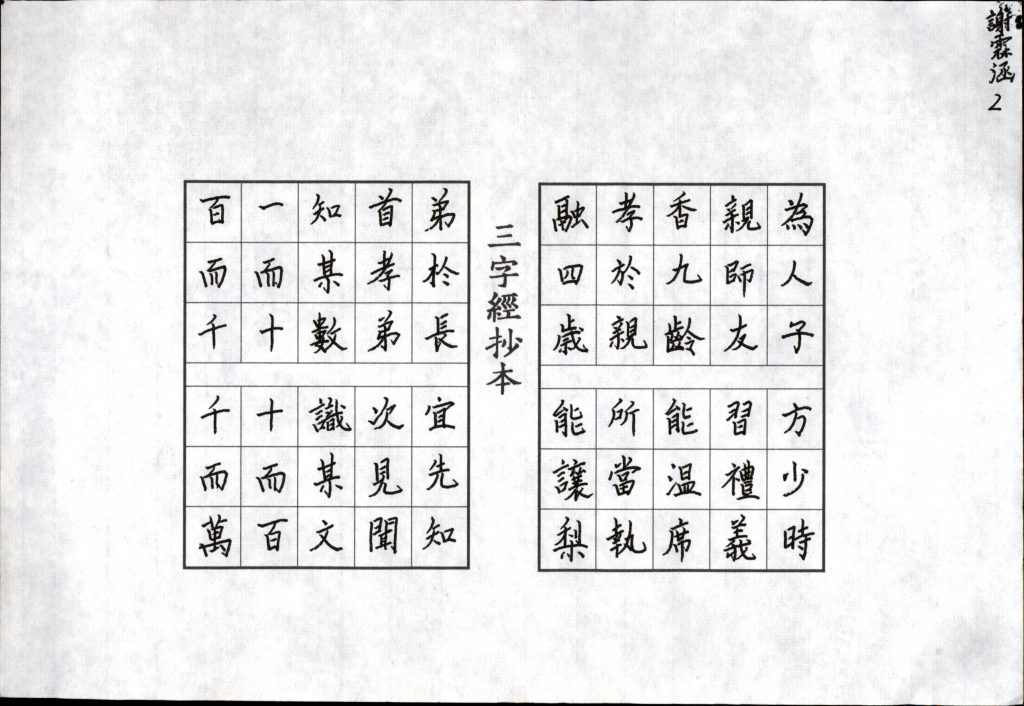 謝霖涵
2
為人子 方少時
親師友 習禮義
香九齡 能温席
孝於親 所當執
融四歲 能讓梨
三字經抄本
弟於長 宜先知
首孝弟 次見聞
知某數 識某文
一而十 十而百
百而千 千而萬